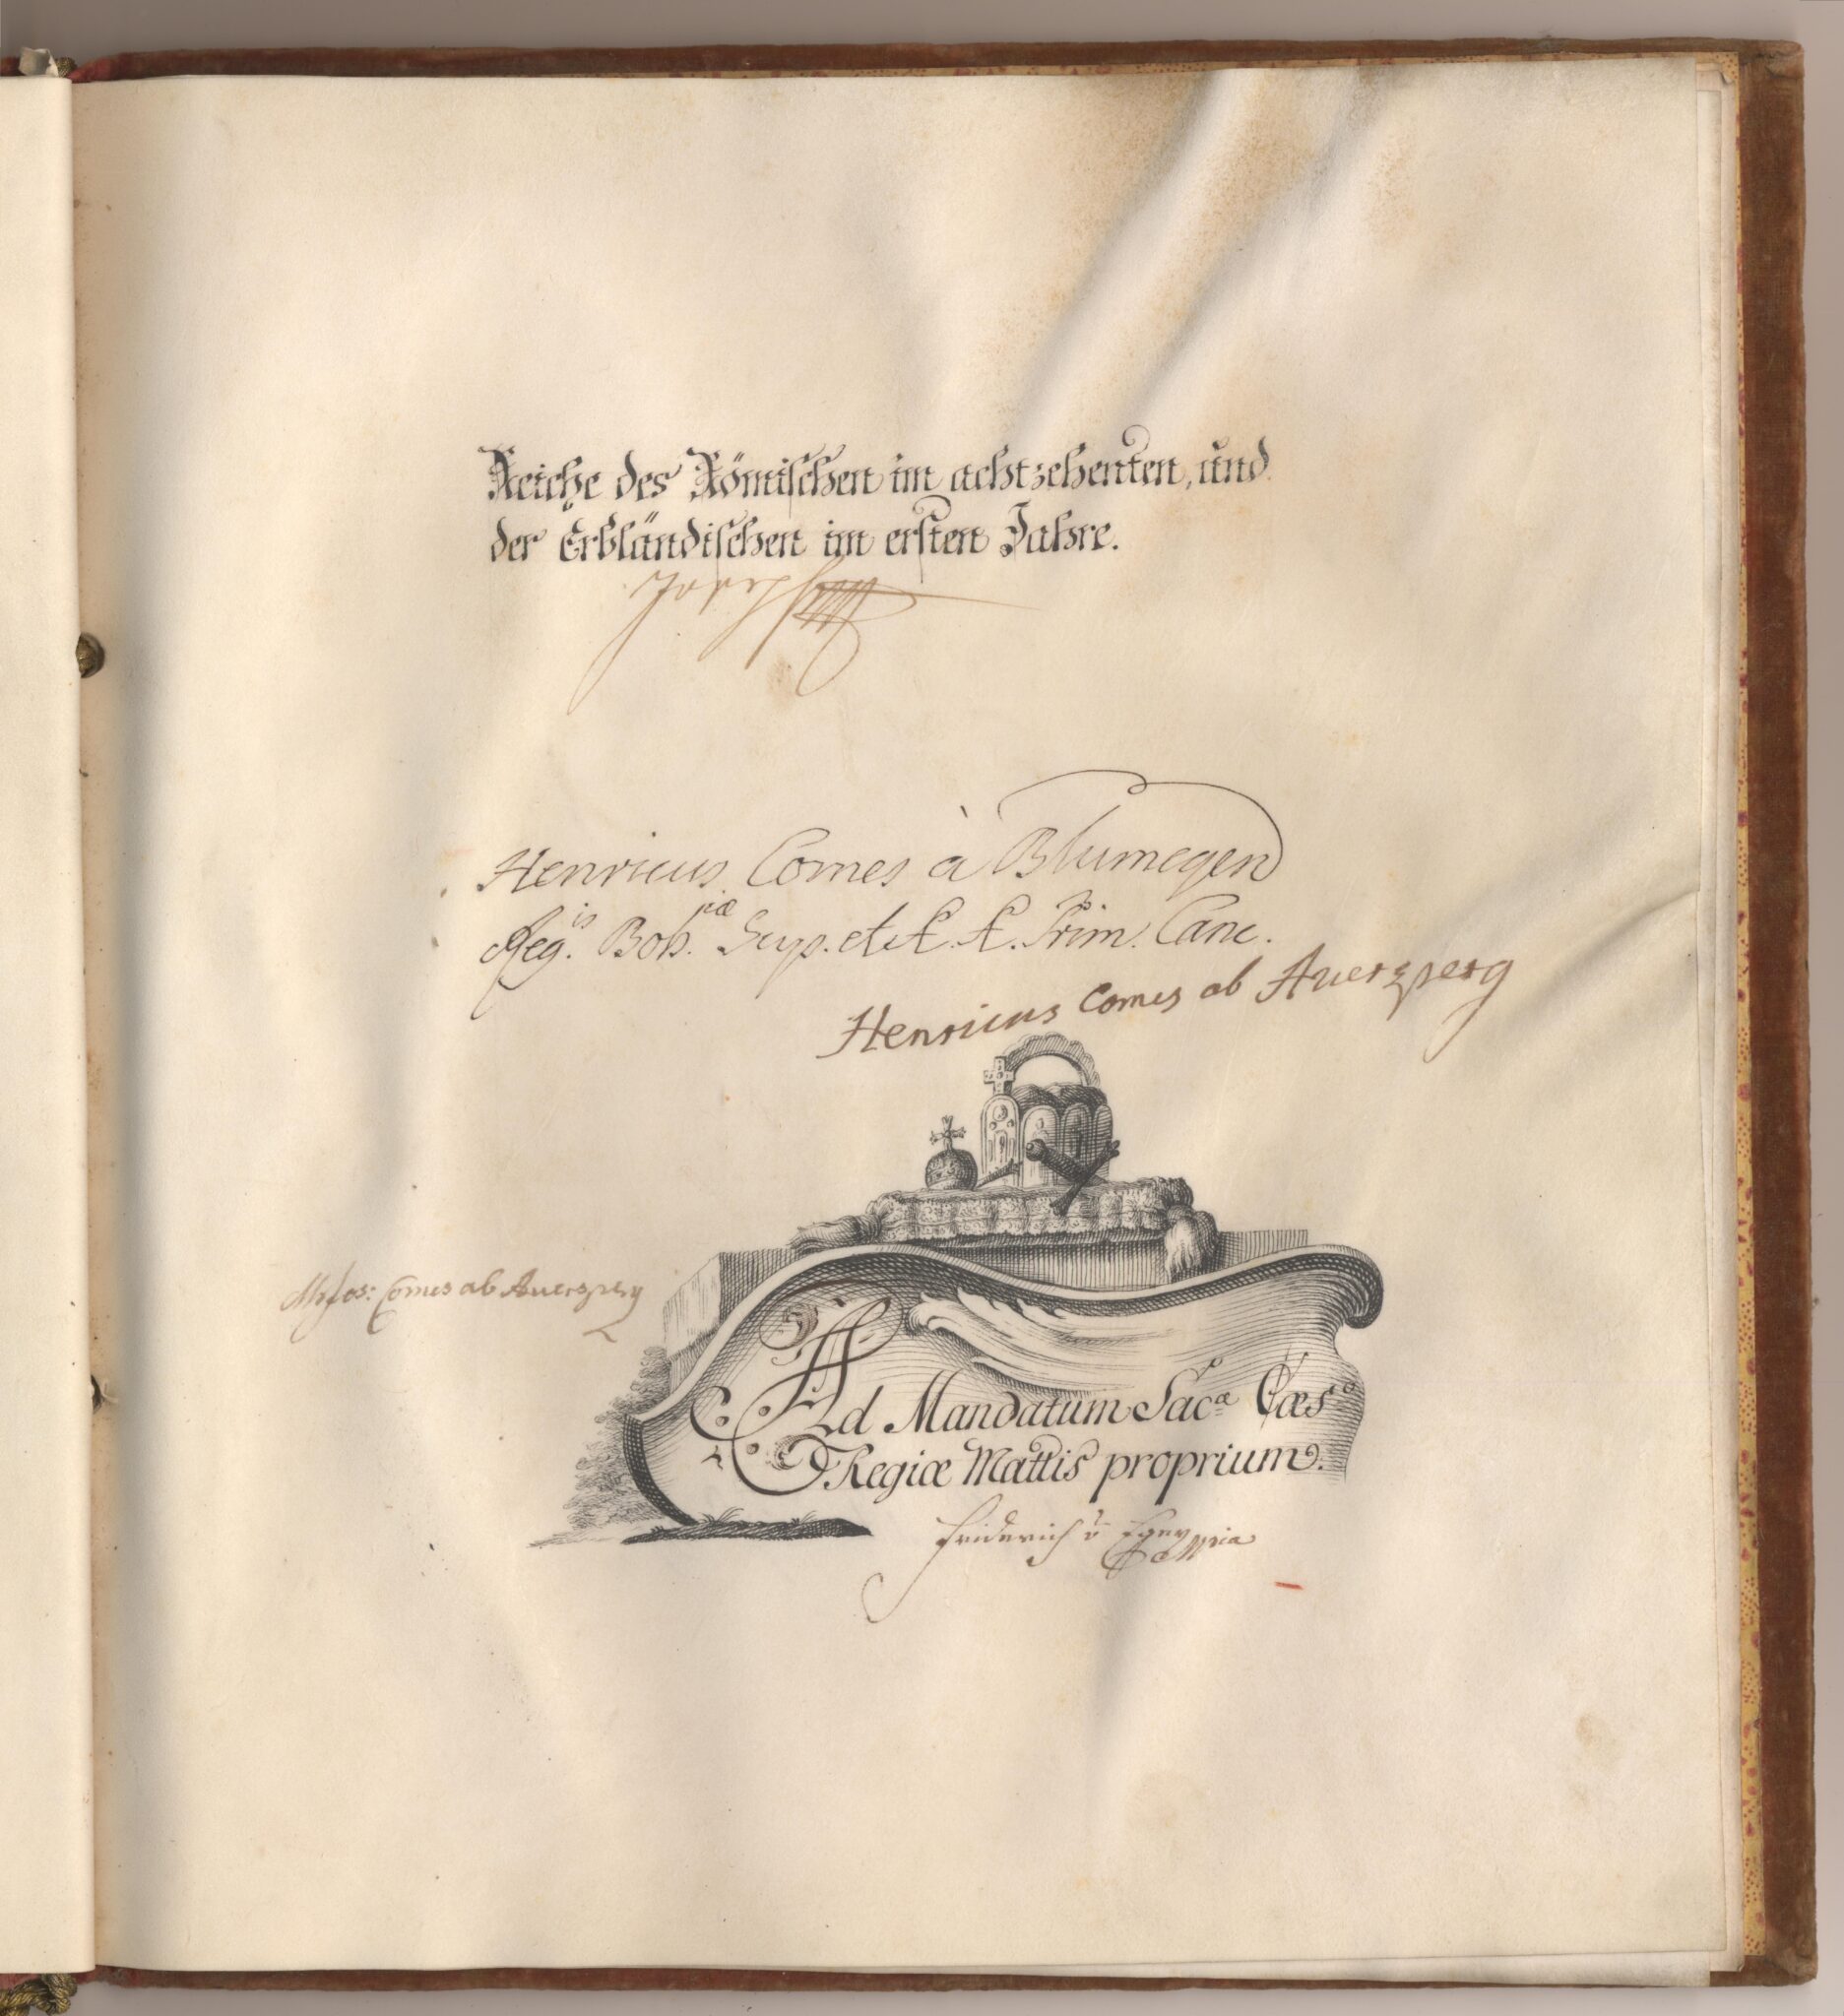 Reiche des Römischen im achtzehenten, und
der Erbländischen im ersten Jahre.
Joseph
Henricus Comes à Blumegen
Reg.is Boh.iæ Sup. et A. A. Prim. Canc.
Henricus Comes ab Auersperg
Comes ab Auersperg
Ad Mandatum Sac.æ Cæs.o
Regiæ Mattis proprium.
Friderich v